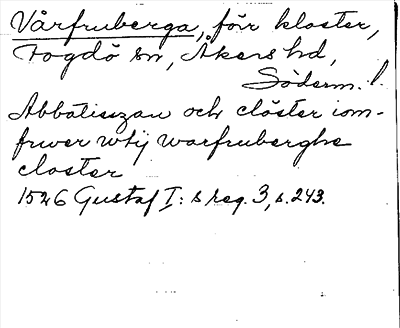 Vårfruberga, förr kloster,
Fogdö sn, Åkers hd,
Söderm. l.
Abbatisszan och clöster iom-
frwer wtij warfruberghe
closter
1526 Gustaf I:s reg. 3, s. 243.